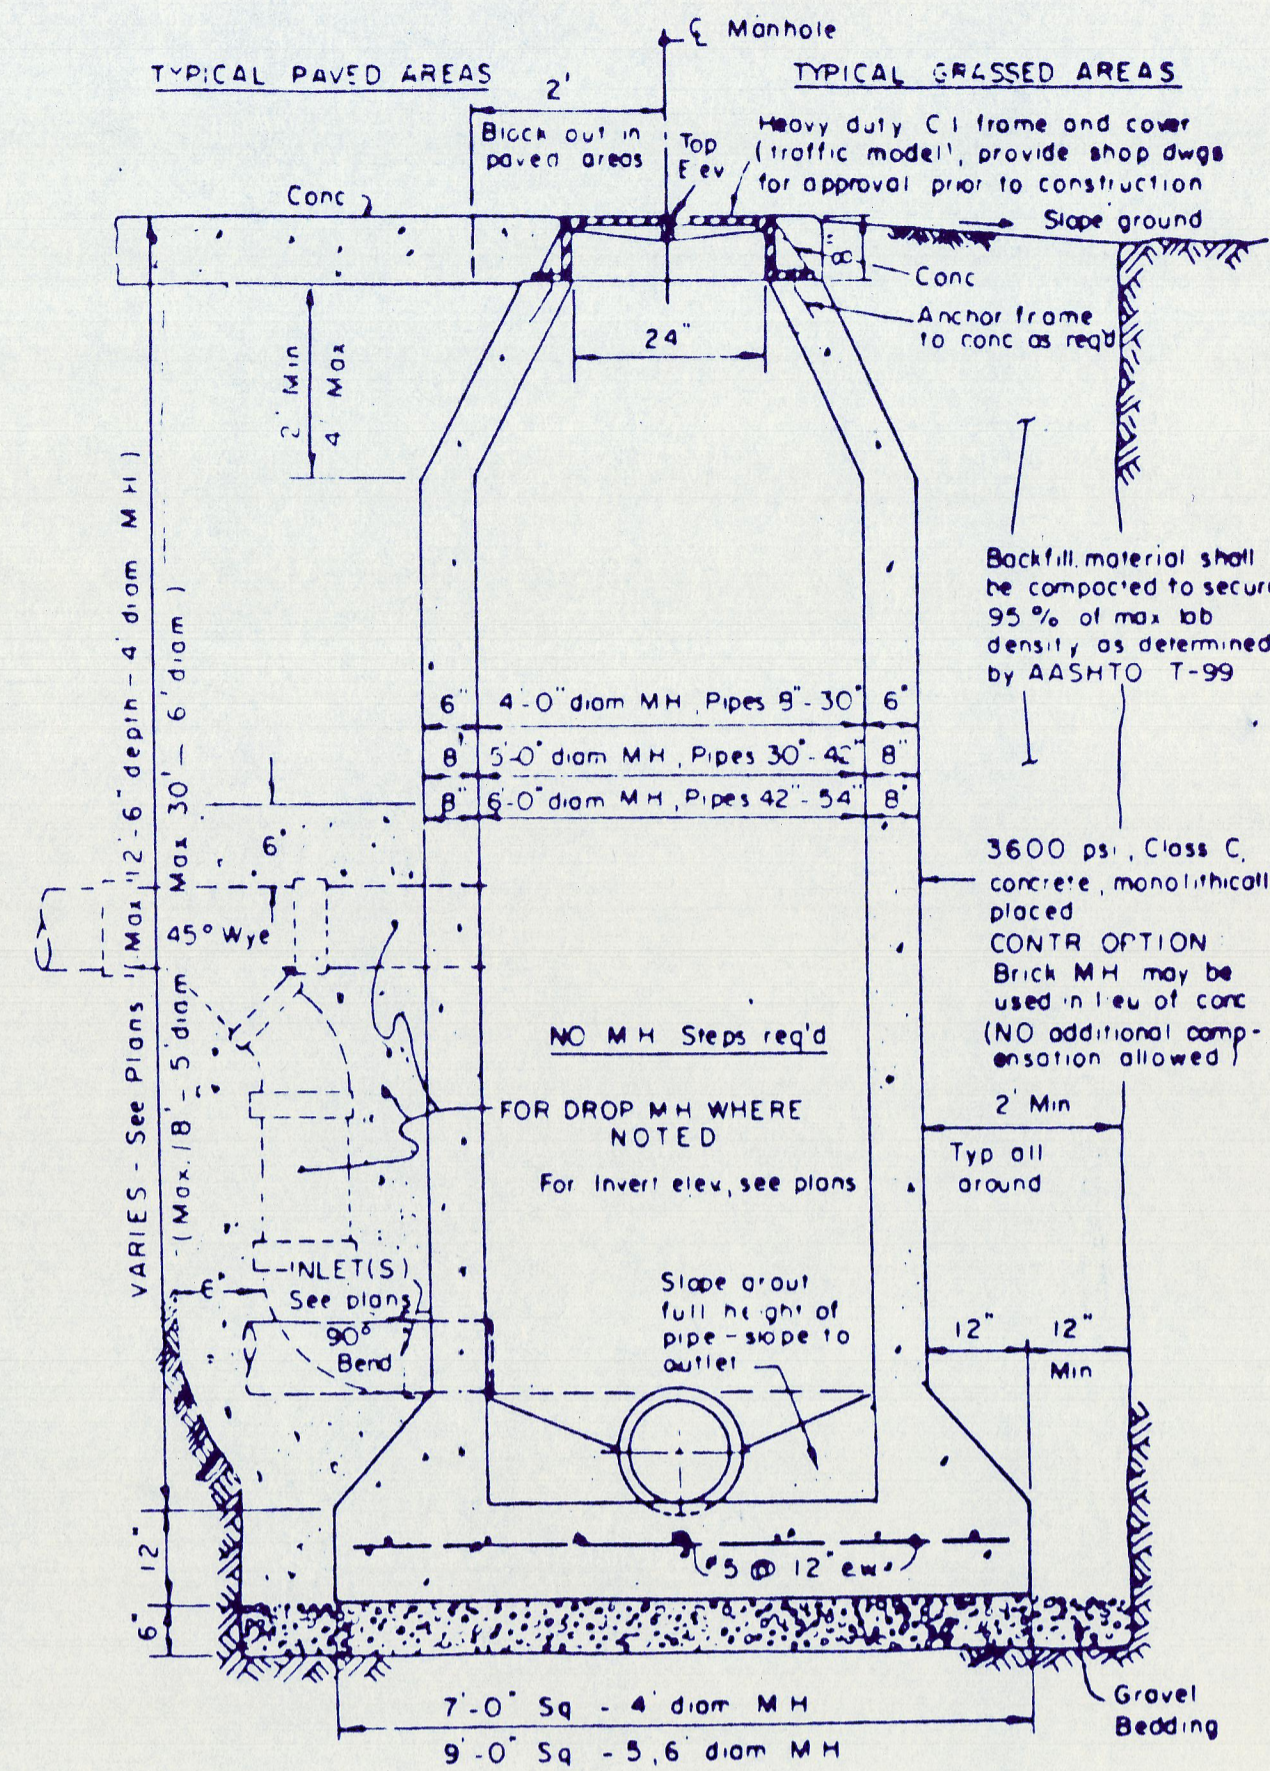 ℄ Manhole
TYPICAL PAVED AREAS
TYPICAL GRASSED AREAS
2'
Block out in
paved areas
Top
Elev
Heavy duty C I frame and cover
(traffic model), provide shop dwgs
for approval prior to construction
Conc
Slope ground
8"
Conc
Anchor frame
to conc as req'd
24"
2' Min
4' Max
VARIES - See Plans (Max 12'-6" depth - 4' diam M H)
(Max. 18' - 5' diam Max 30' - 6' diam)
Backfill material shall
be compacted to secure
95 % of max lab
density as determined
by AASHTO T-99
6" 4'-0" diam MH, Pipes 8"-30" 6"
8" 5'-0" diam MH, Pipes 30"-42" 8"
8" 6'-0" diam MH, Pipes 42"-54" 8"
6"
45° Wye
3600 psi, Class C,
concrete, monolithicall
placed
CONTR OPTION
Brick MH may be
used in lieu of conc
(NO additional comp-
ensation allowed)
NO MH Steps req'd
FOR DROP MH WHERE
NOTED
For Invert elev, see plans
2' Min
Typ all
around
INLET(S)
See plans
6"
90°
Bend
Slope grout
full height of
pipe - slope to
outlet
12" 12"
Min
12"
6"
#5 @ 12" ew
7'-0" Sq - 4' diam MH
9'-0" Sq - 5, 6' diam MH
Gravel
Bedding